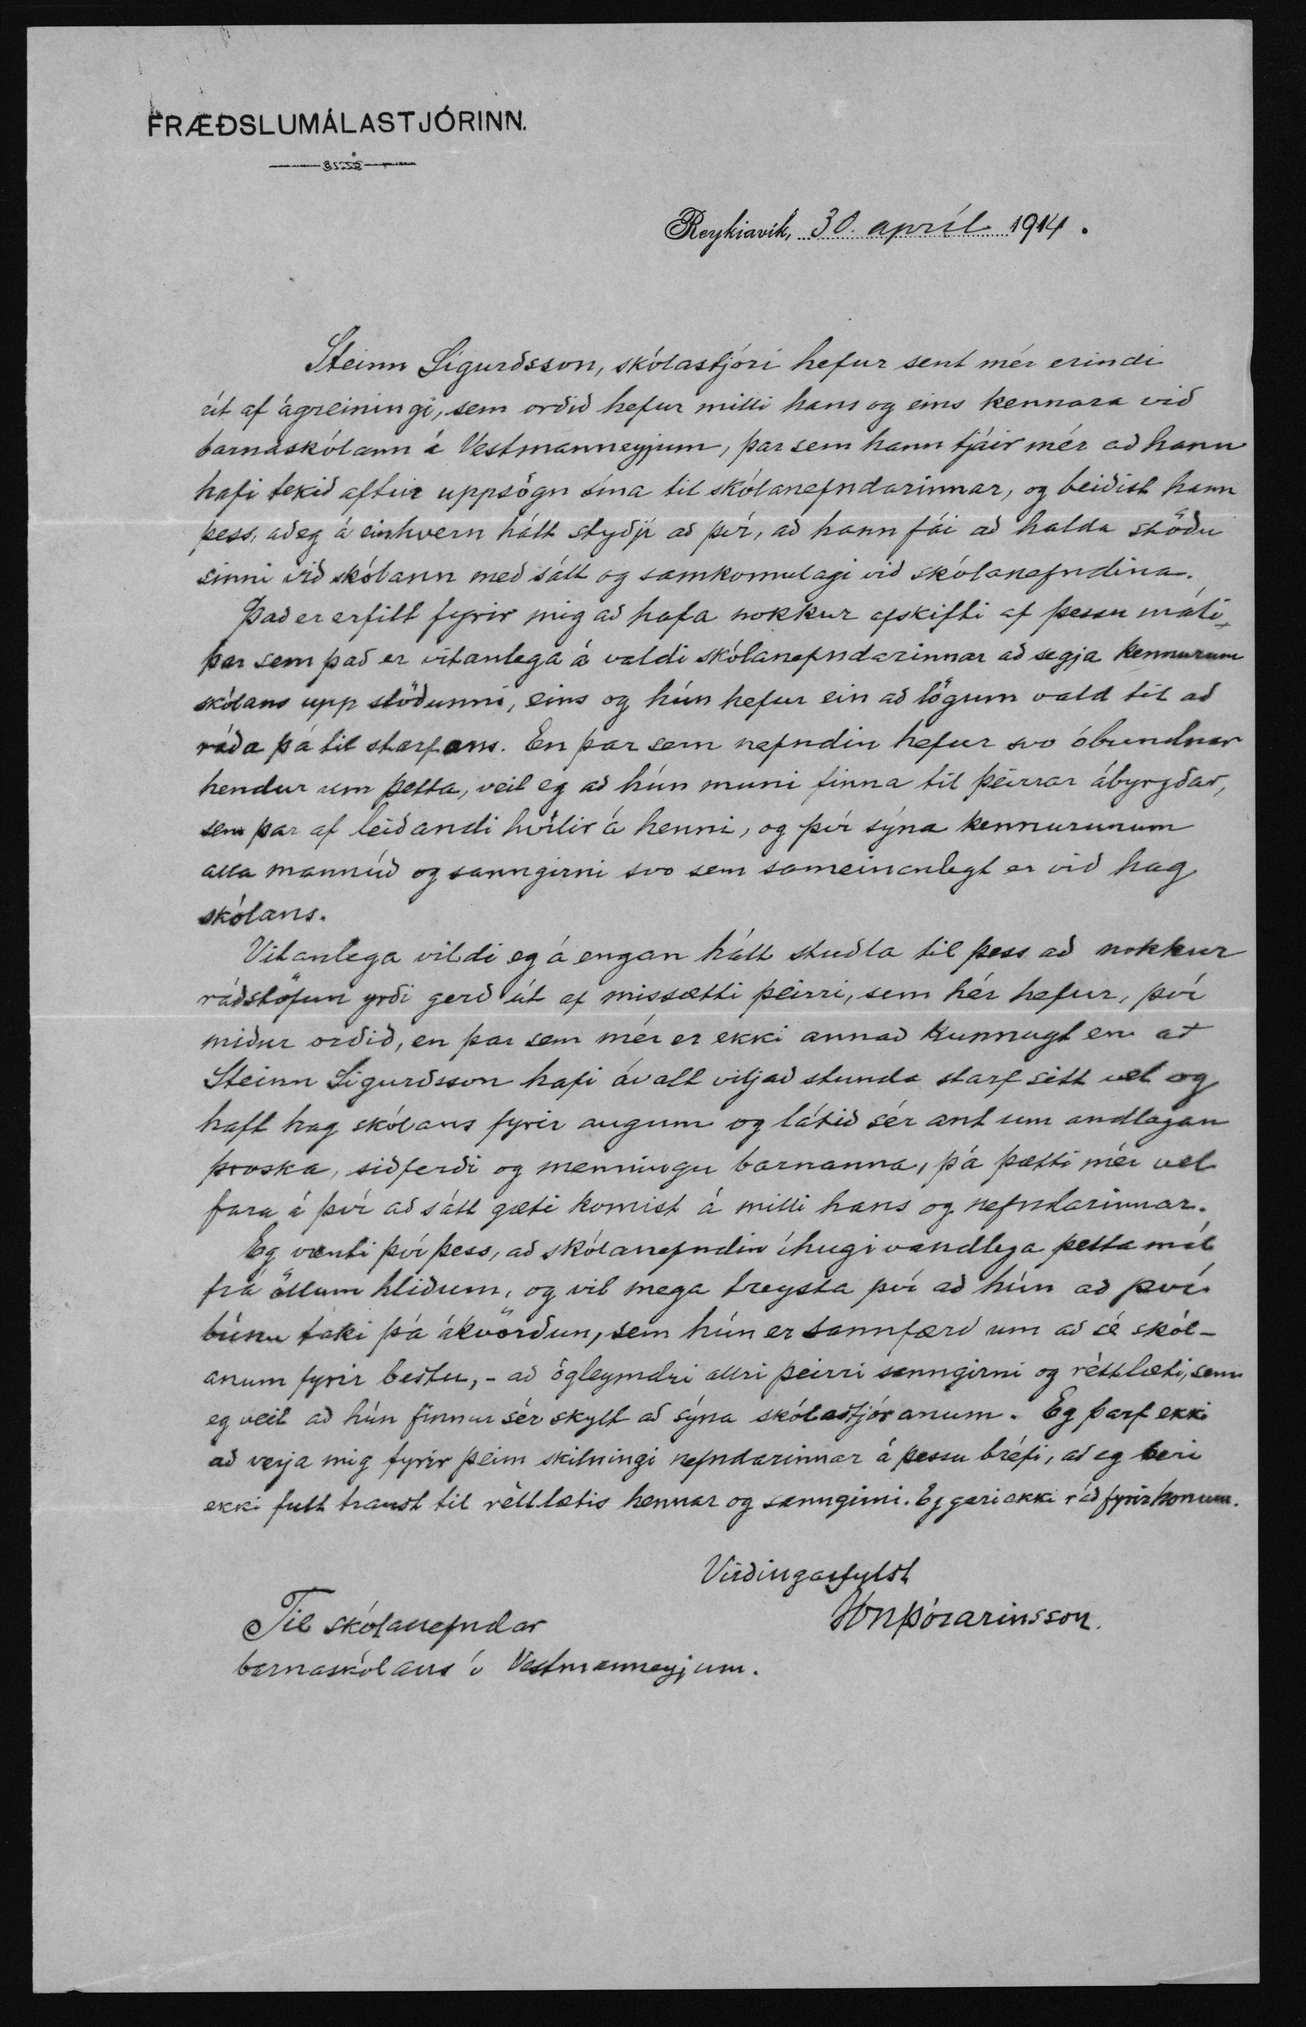 FRÆÐSLUMÁLASTJÓRINN.
Reykjavík, 30. apríl 1914.
Steinn Sigurðsson, skólastjóri hefur sent mér erindi
út af ágreiningi, sem orðið hefur milli hans og eins kennara við
barnaskólann á Vestmanneyjum, þar sem hann tjáir mér að hann
hafi tekið aftur uppsögn sína til skólanefndarinnar, og beiðist hann
þess, að eg á einhvern hátt styðji að því, að hann fái að halda stöðu
sinni við skólann með sátt og samkomulagi við skólanefndina.
Það er erfitt fyrir mig að hafa nokkur afskifti af þessu máli,
þar sem það er vitanlega á valdi skólanefndarinnar að segja kennurum
skólans upp stöðunni, eins og hún hefur ein að lögum vald til að
ráða þá til starfans. En þar sem nefndin hefur svo óbundnar
hendur um þetta, veit eg að hún muni finna til þeirrar ábyrgðar,
sem þar af leiðandi hvílir á henni, og því sýna kennurunum
alla mannúð og sanngirni svo sem sameinanlegt er við hag
skólans.
Vitanlega vildi eg á engan hátt stuðla til þess að nokkur
ráðstöfun yrði gerð út af missætti þeirri, sem hér hefur, því
miður orðið, en þar sem mér er ekki annað kunnugt en at
Steinn Sigurðsson hafi ávalt viljað stunda starf sitt vel og
haft hag skólans fyrir augum og látið sér ant um andlegan
þroska, siðferði og menningu barnanna, þá þætti mér vel
fara á því að sátt gæti komist á milli hans og nefndarinnar.
Eg vænti því þess, að skólanefndin íhugi vandlega þetta mál
frá öllum hliðum, og vil mega treysta því að hún að því
búnu taki þá ákvörðun, sem hún er sannfærð um að sé skól-
anum fyrir bestu, - að ógleymdri allri þeirri sanngirni og réttlæti, sem
eg veit að hún finnur sér skylt að sýna skólastjóranum. Eg þarf ekki
að verja mig fyrir þeim skilningi nefndarinnar á þessu bréfi, að eg beri
ekki fult traust til réttlætis hennar og sanngirni. Eg geri ekki ráð fyrir honum.
Virðingarfylst
Jón Þórarinsson.
Til skólanefndar
barnaskólans í Vestmanneyjum.